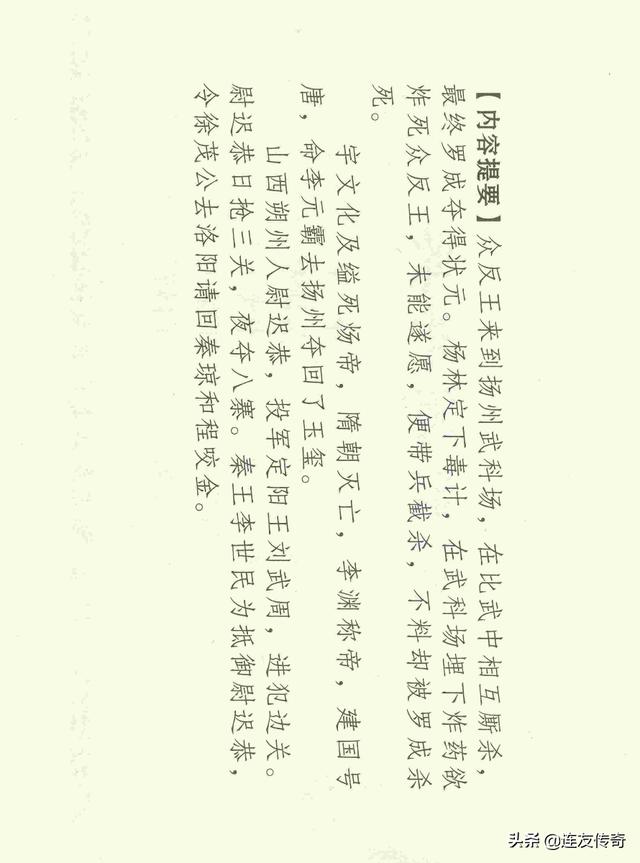 【内容提要】众反王来到扬州武科场，在比武中相互厮杀，
最终罗成夺得状元。杨林定下毒计，在武科场埋下炸药欲
炸死众反王，未能遂愿，便带兵截杀，不料却被罗成杀
死。
宇文化及缢死炀帝，隋朝灭亡，李渊称帝，建国号
唐，命李元霸去扬州夺回了玉玺。
山西朔州人尉迟恭，投军定阳王刘武周，进犯边关。
尉迟恭日抢三关，夜夺八寨。秦王李世民为抵御尉迟恭，
令徐茂公去洛阳请回秦琼和程咬金。
头条 @连友传奇